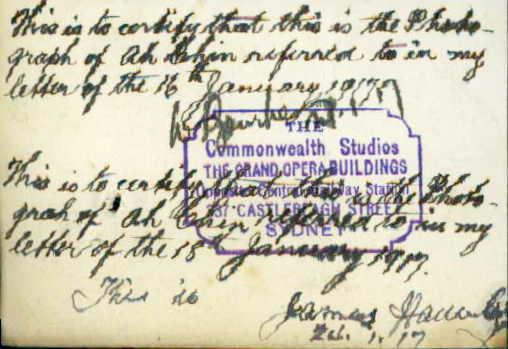 This is to certify that this is the Photo-
graph of Ah Chin referred to in my
letter of the 16th January, 1917.
THE
Commonwealth Studios
THE GRAND OPERA BUILDINGS
Opposite Central Railway Station
CASTLEREAGH STREET
SYDNEY
This is to certify that this is the Photo-
graph of Ah Chin referred to in my
letter of the 15th January 1917.
This is
James
24. 1. 17